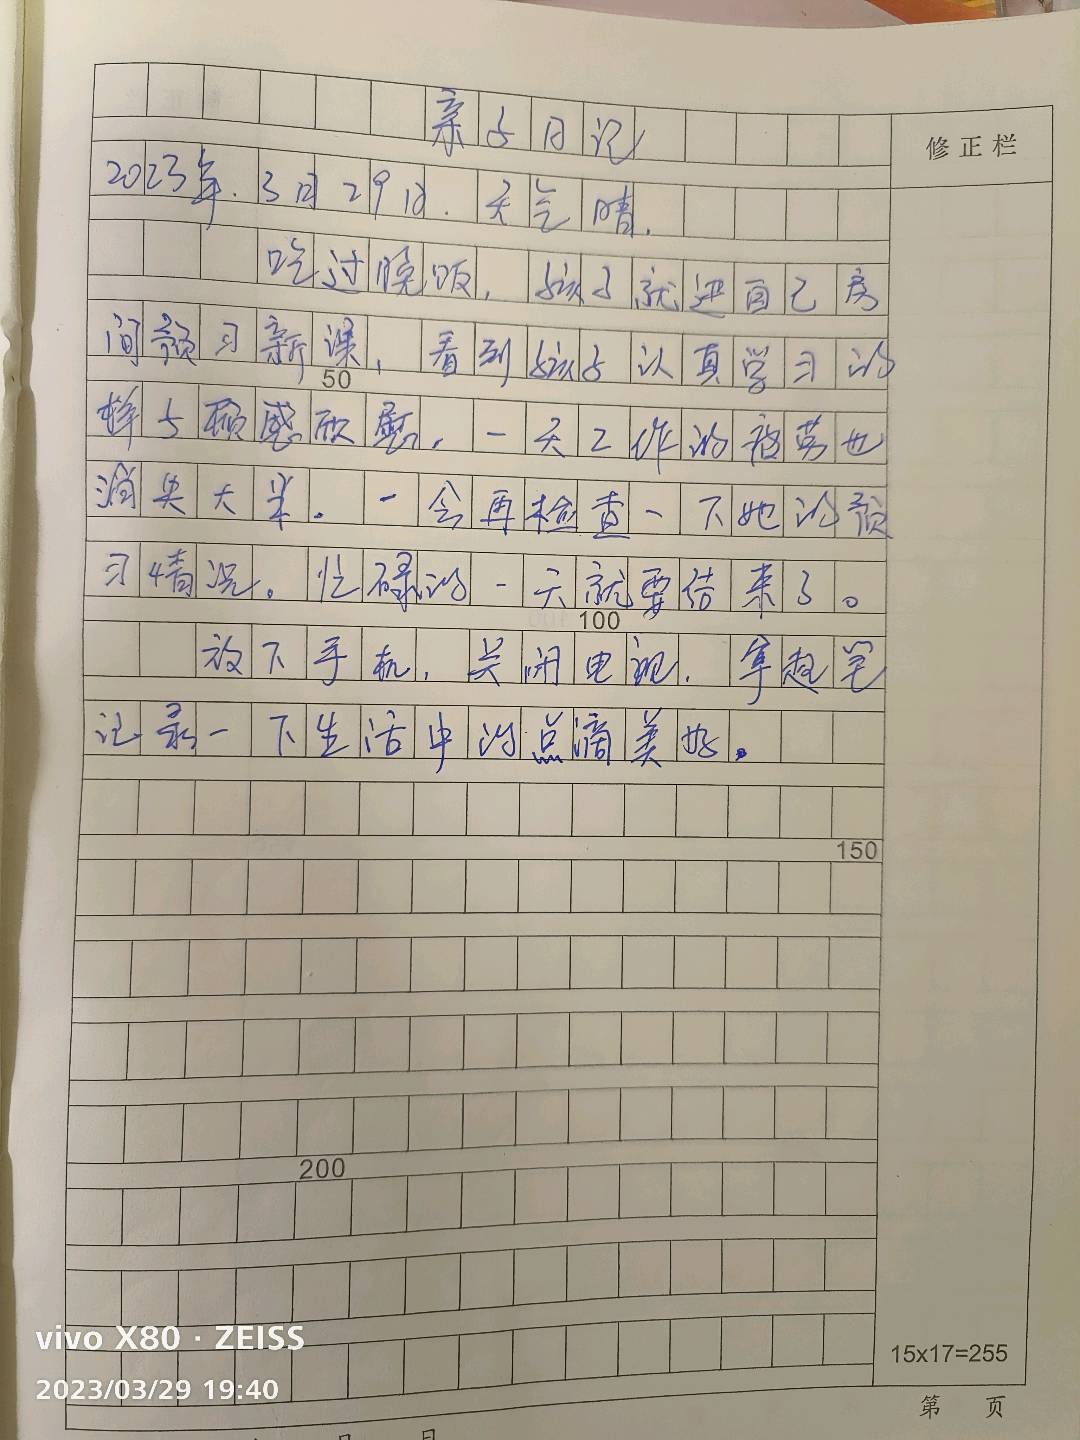 亲子日记
修正栏
2023年.3月29日.天气晴.
吃过晚饭,孩子就进自己房
间预习新课,看到孩子认真学习的
50
样子颇感欣慰,一天工作的疲劳也
消失大半。一会再检查一下她的预
习情况。忙碌的一天就要结束了。
100
放下手机,关闭电视.拿起笔
记录一下生活中的点滴美好。
150
200
15x17=255
第 页
月 日
vivo X80 · ZEISS
2023/03/29 19:40